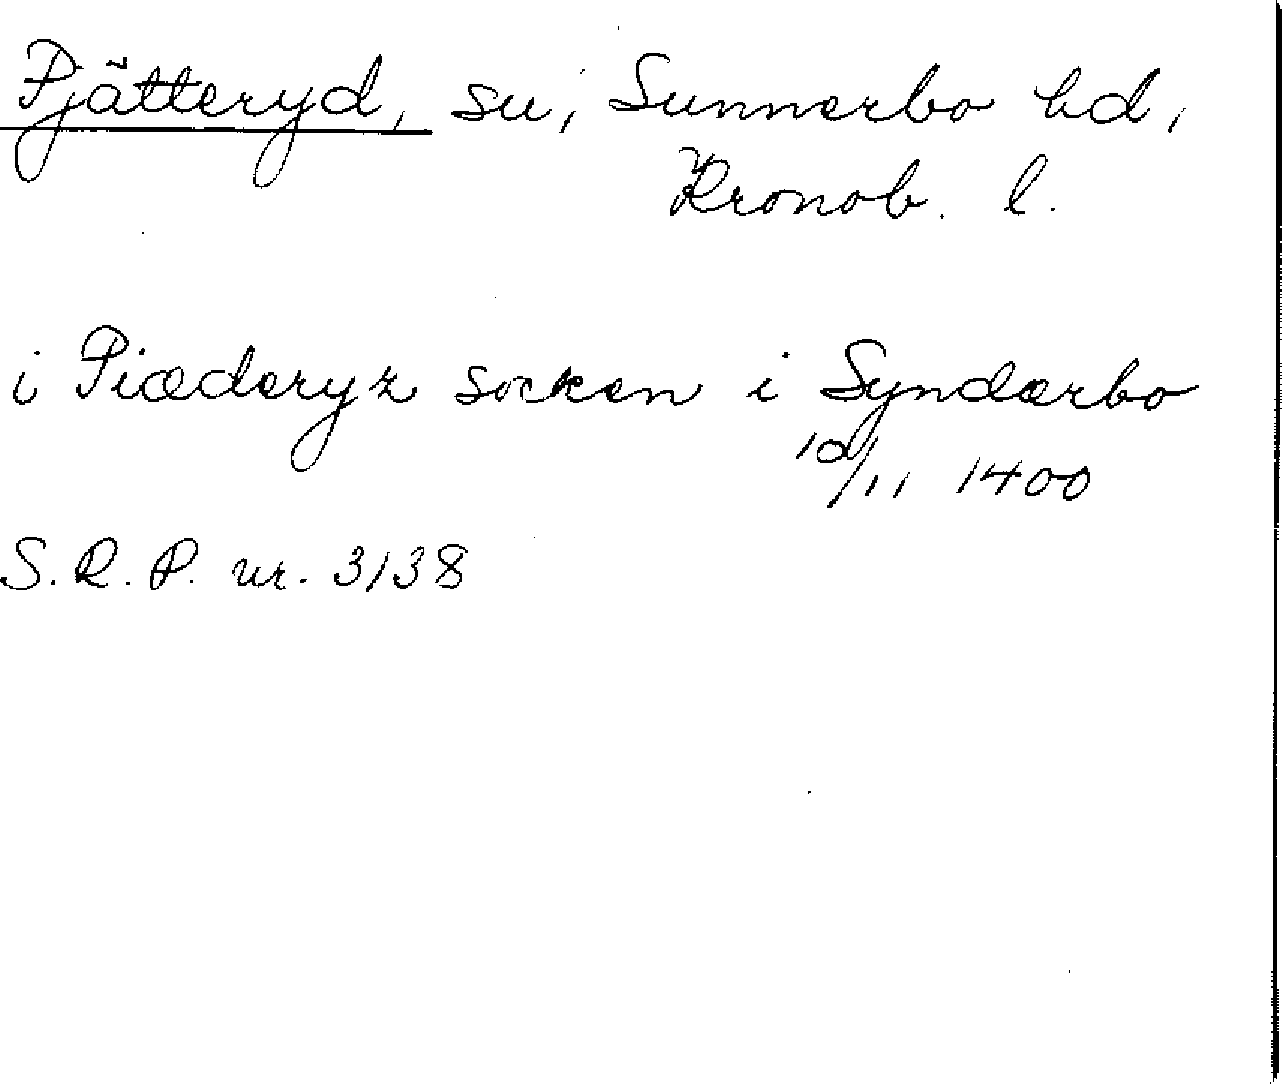 Pjätteryd, sn, Sunnerbo hd,
Kronob. l.
i Piæderyz socken i Syndærbo
10/11 1400
S.R.P. nr. 3138